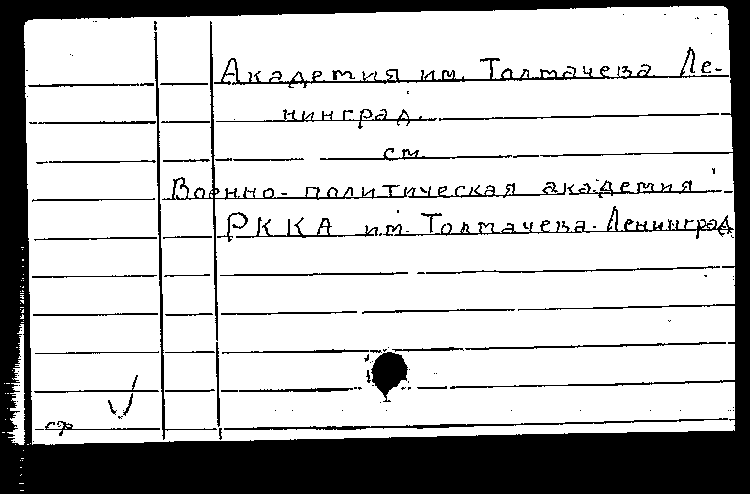 Академия им. Толмачева Ле-
нинград.
см.
Военно-политическая академия
РККА им. Толмачева. Ленинград